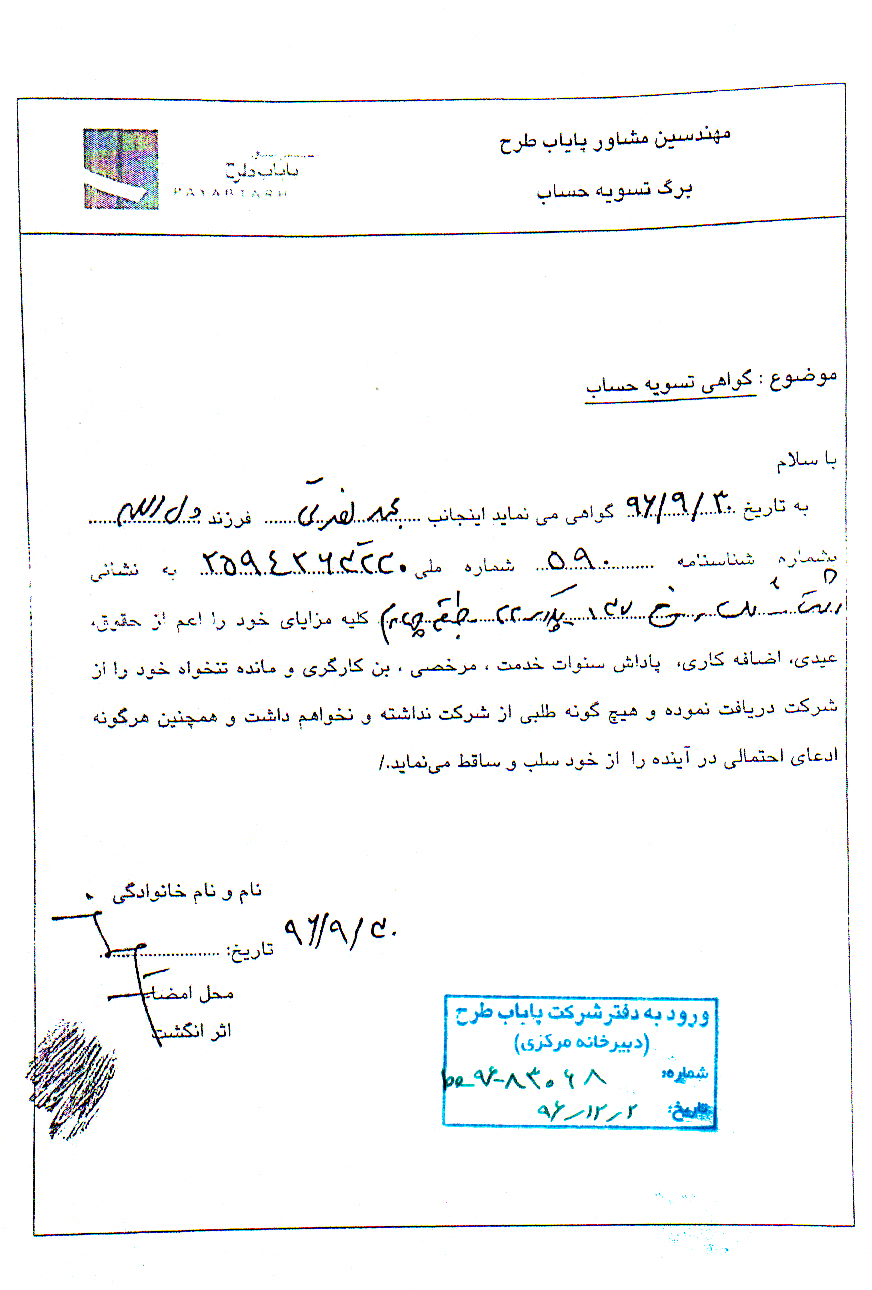 مهندسین مشاور پایاب طرح
برگ تسویه حساب
پایاب طرح
PAYABTARH
موضوع : گواهی تسویه حساب
با سلام
به تاریخ ۹۶/۹/۳۰ گواهی می نماید اینجانب محمد نصرتی فرزند ولی الله
بشماره شناسنامه ۵۹۰ شماره ملی به نشانی
رشت طبقه چهارم کلیه مزایای خود را اعم از حقوق،
عیدی، اضافه کاری، پاداش سنوات خدمت ، مرخصی ، بن کارگری و مانده تنخواه خود را از
شرکت دریافت نموده و هیچ گونه طلبی از شرکت نداشته و نخواهم داشت و همچنین هرگونه
ادعای احتمالی در آینده را از خود سلب و ساقط می‌نماید./
نام و نام خانوادگی
تاریخ: ۹۶/۹/۳۰
محل امضاء
اثر انگشت
ورود به دفتر شرکت پایاب طرح
(دبیرخانه مرکزی)
شماره:
تاریخ: ۹۶/۱۲/۲